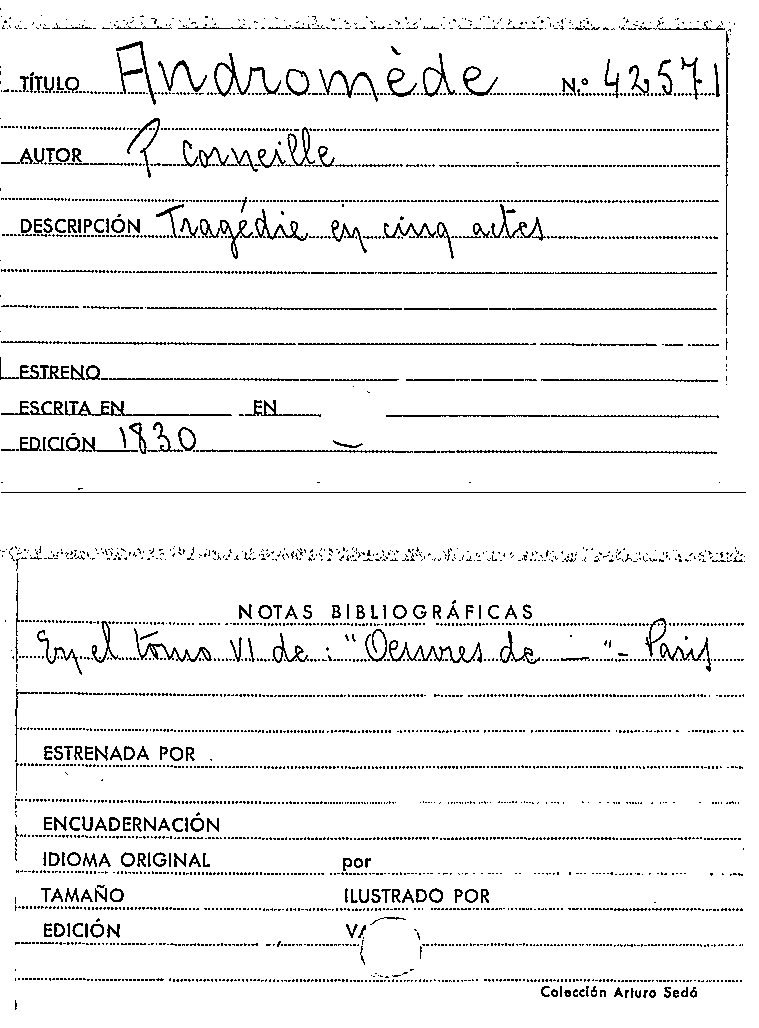 TÍTULO Andromède N.º 42571
AUTOR P Corneille
DESCRIPCIÓN Tragédie en cinq actes
ESTRENO
ESCRITA EN EN
EDICIÓN 1830
NOTAS BIBLIOGRÁFICAS
En el tomo VI de: "Oeuvres de — "- Paris
ESTRENADA POR
ENCUADERNACIÓN
IDIOMA ORIGINAL por
TAMAÑO ILUSTRADO POR
EDICIÓN
Colección Arturo Sedó